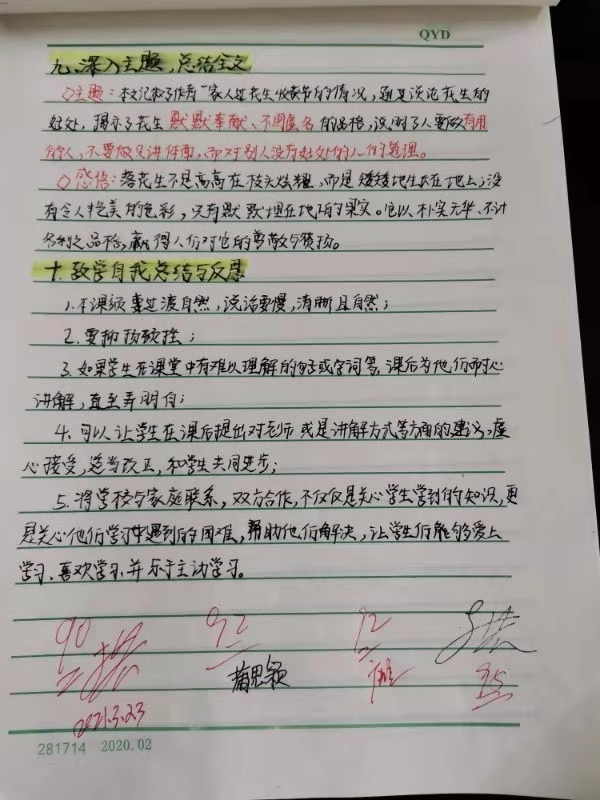 QVD
九、深入主题,总结全文
◇主题:本文记叙了作者一家人过花生收获节的情况,通过谈论花生的
好处,揭示了花生默默奉献、不图虚名的品格,说明了人要做有用
的人,不要做只讲体面,而对别人没有好处的人的道理。
◇感悟:落花生不是高高在枝头炫耀,而是矮矮地生长在地上;没
有令人艳美的色彩,只有默默埋在地下的果实。它以朴实无华、不计
名利之品格,赢得人们对它的尊敬与赞扬。
十、教学自我总结与反思
1.本课须要过渡自然,说话要慢,清晰且自然;
2.要抑扬顿挫;
3.如果学生在课堂中有难以理解的句子或字词等,课后为他们耐心
讲解,直至弄明白;
4.可以让学生在课后提出对老师或是讲解方式等方面的建议,虚
心接受,适当改正,和学生共同进步;
5.将学校与家庭联系,双方合作,不仅仅是关心学生学到的知识,更
是关心他们学习中遇到的困难,帮助他们解决,让学生们能够爱上
学习、喜欢学习并乐于主动学习。
90 92 92
蒲思颖 95
2021.3.23
281714 2020.02